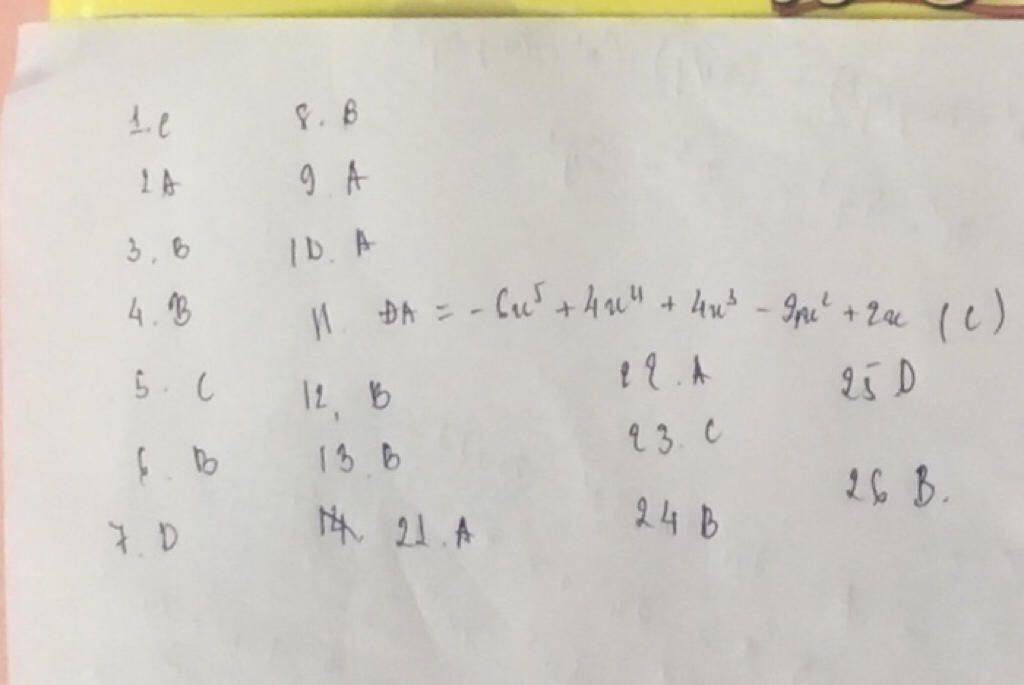 1. C
2 A
3. B
4. B
5. C
6. B
7. D
8. B
9. A
10. A
11. ĐA = -6x⁵ + 4x⁴ + 4x³ - 9x² + 2x (C)
12. B
13. B
21. A
22. A
23. C
24 B
25 D
26 B.